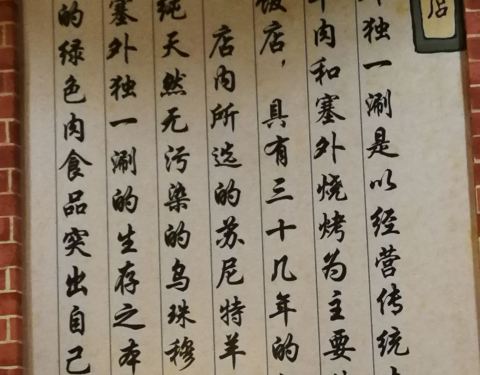 店
外独一涮是以经营传统
羊肉和塞外烧烤为主要
饭店，具有三十几年的
店内所选的苏尼特羊
纯天然无污染的乌珠穆
塞外独一涮的生存之本
的绿色肉食品突出自己